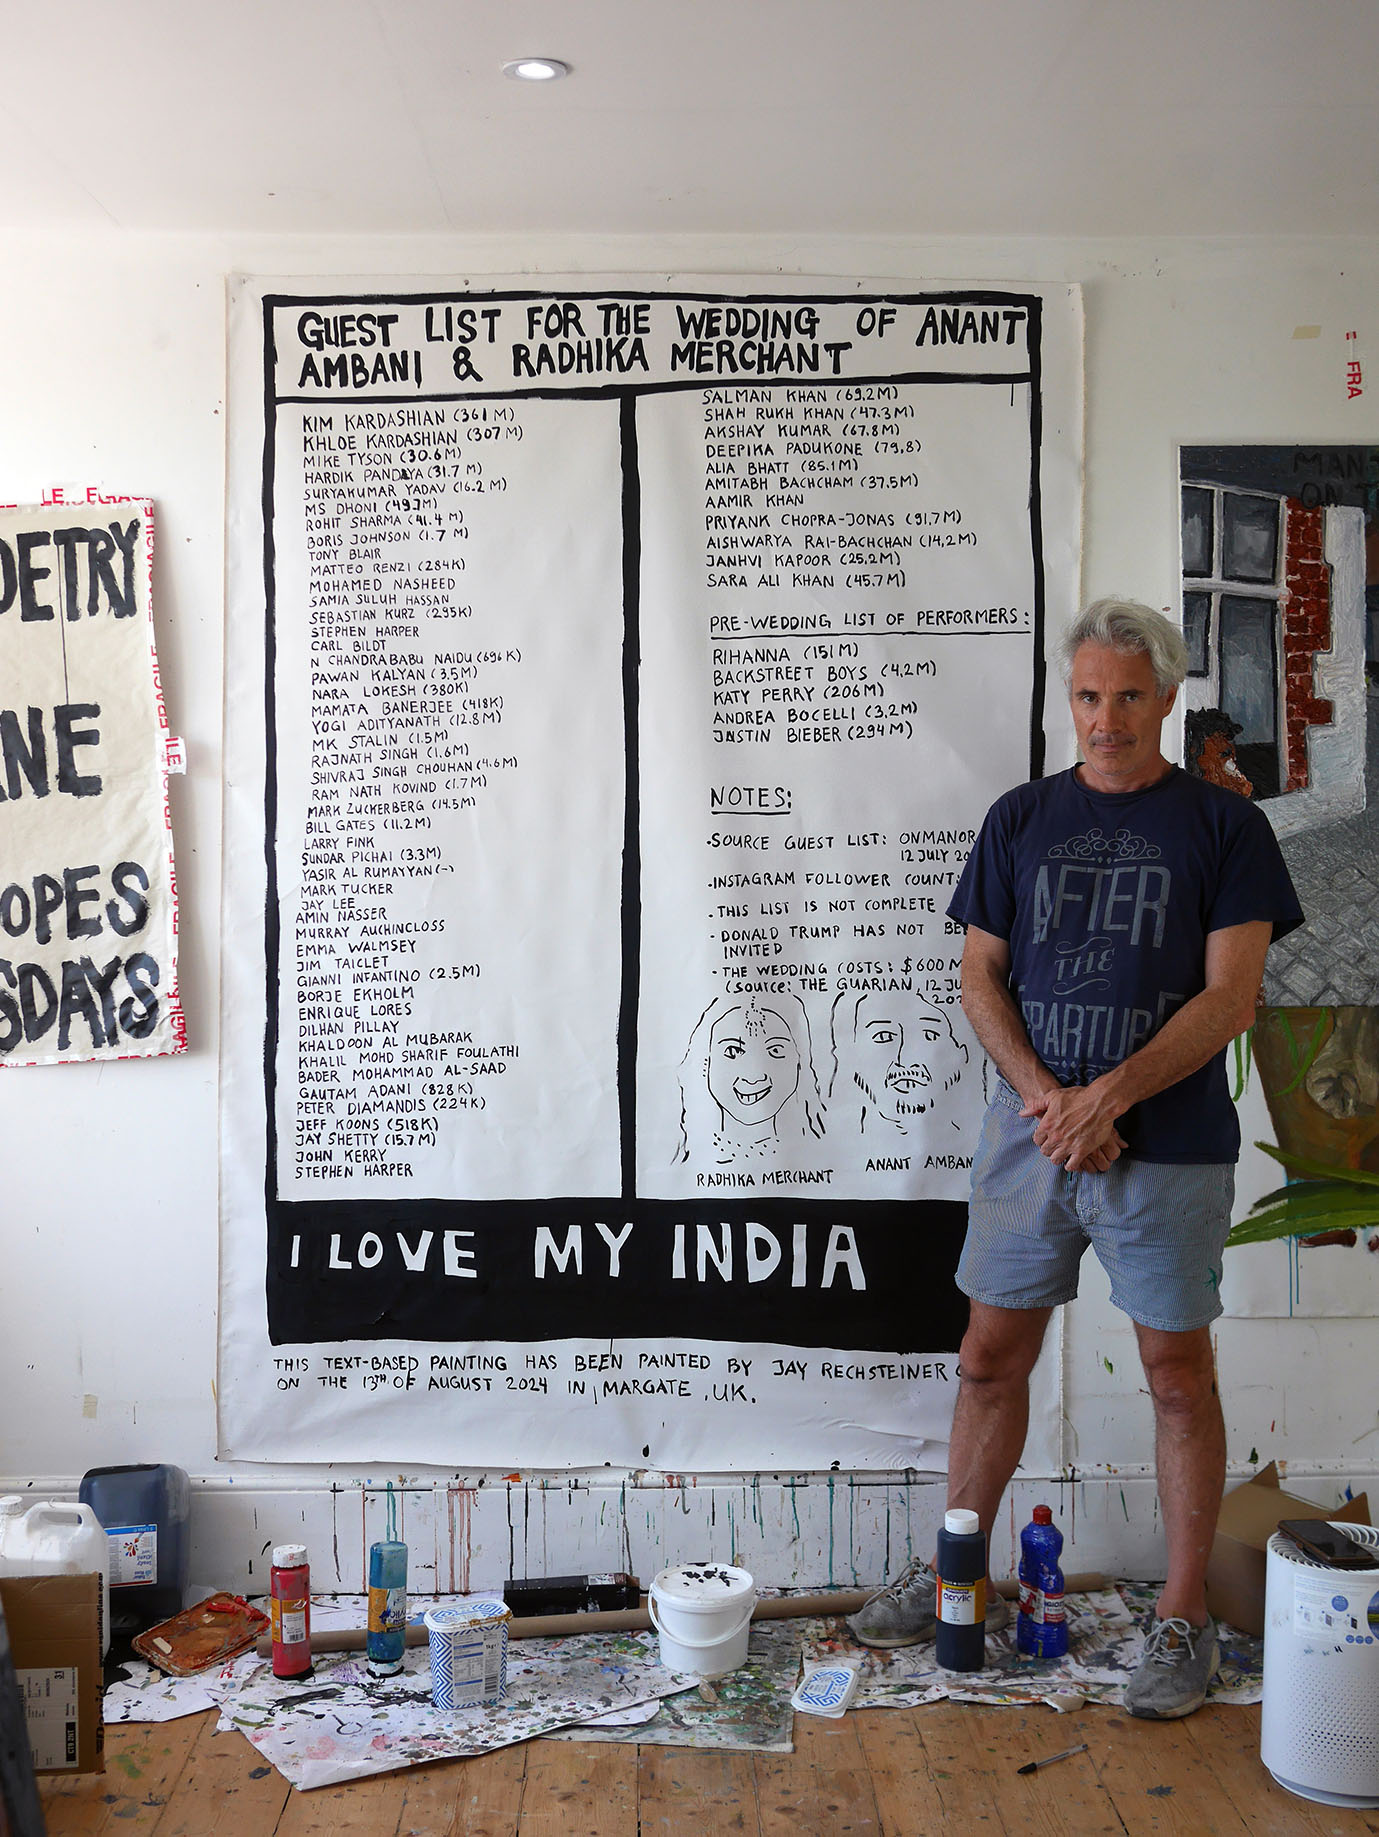 GUEST LIST FOR THE WEDDING OF ANANT
AMBANI & RADHIKA MERCHANT
KIM KARDASHIAN (361 M)
KHLOE KARDASHIAN (307 M)
MIKE TYSON (30.6M)
HARDIK PANDAYA (31.7 M)
SURYAKUMAR YADAV (16.2 M)
MS DHONI (49.7M)
ROHIT SHARMA (41.4 M)
BORIS JOHNSON (1.7 M)
TONY BLAIR
MATTEO RENZI (284K)
MOHAMED NASHEED
SAMIA SULUH HASSAN
SEBASTIAN KURZ (295K)
STEPHEN HARPER
CARL BILDT
N CHANDRABABU NAIDU (696 K)
PAWAN KALYAN (3.5M)
NARA LOKESH (380K)
MAMATA BANERJEE (418K)
YOGI ADITYANATH (12.8M)
MK STALIN (1.5M)
RAJNATH SINGH (1.6M)
SHIVRAJ SINGH CHOUHAN (4.6 M)
RAM NATH KOVIND (1.7 M)
MARK ZUCKERBERG (14.5M)
BILL GATES (11.2M)
LARRY FINK
SUNDAR PICHAI (3.3M)
YASIR AL RUMAYYAN (-)
MARK TUCKER
JAY LEE
AMIN NASSER
MURRAY AUCHINCLOSS
EMMA WALMSEY
JIM TAICLET
GIANNI INFANTINO (2.5M)
BORJE EKHOLM
ENRIQUE LORES
DILHAN PILLAY
KHALDOON AL MUBARAK
KHALIL MOHD SHARIF FOULATHI
BADER MOHAMMAD AL-SAAD
GAUTAM ADANI (828K)
PETER DIAMANDIS (224K)
JEFF KOONS (518K)
JAY SHETTY (15.7 M)
JOHN KERRY
STEPHEN HARPER
SALMAN KHAN (69.2M)
SHAH RUKH KHAN (47.3M)
AKSHAY KUMAR (67.8M)
DEEPIKA PADUKONE (79.8)
ALIA BHATT (85.1M)
AMITABH BACHCHAM (37.5M)
AAMIR KHAN
PRIYANK CHOPRA-JONAS (91,7M)
AISHWARYA RAI-BACHCHAN (14,2M)
JANHVI KAPOOR (25,2M)
SARA ALI KHAN (45.7M)
PRE-WEDDING LIST OF PERFORMERS:
RIHANNA (151M)
BACKSTREET BOYS (4,2M)
KATY PERRY (206M)
ANDREA BOCELLI (3,2M)
JUSTIN BIEBER (294M)
NOTES:
·SOURCE GUEST LIST: ONMANOR
12 JULY 20
·INSTAGRAM FOLLOWER COUNT:
· THIS LIST IS NOT COMPLETE
· DONALD TRUMP HAS NOT BE
INVITED
· THE WEDDING COSTS: $600 M
(SOURCE: THE GUARIAN, 12 JU
20
RADHIKA MERCHANT
ANANT AMBAN
I LOVE MY INDIA
THIS TEXT-BASED PAINTING HAS BEEN PAINTED BY JAY RECHSTEINER
ON THE 13TH OF AUGUST 2024 IN MARGATE, UK.
OETRY
NE
OPES
SDAYS
FRAGILE
FRAGILE
FRA
MAN
ON T
AFTER
THE
EPARTURE
acrylic